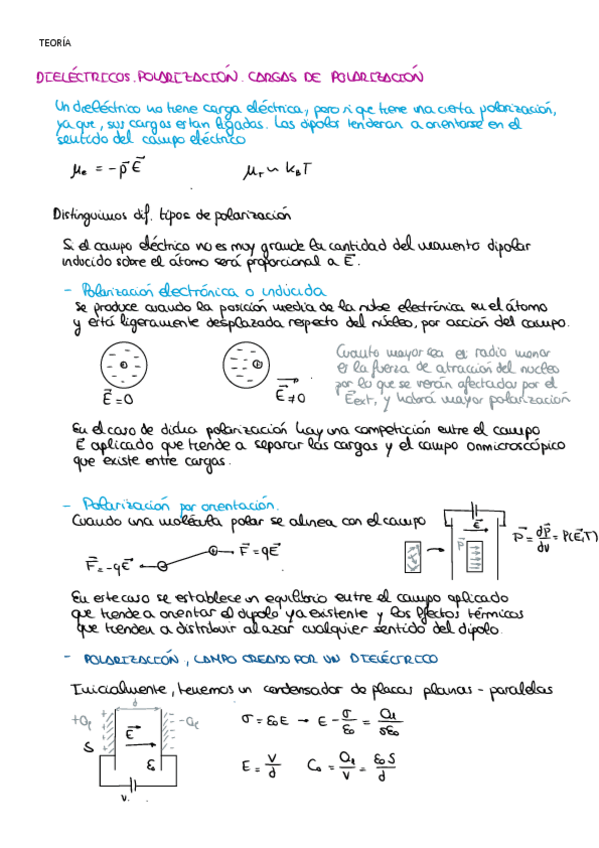 TEORÍA
DIELÉCTRICOS. POLARIZACIÓN. CARGAS DE POLARIZACIÓN
Un dieléctrico no tiene carga eléctrica, pero si que tiene una cierta polarización,
ya que, sus cargas estan ligadas. Los dipolos tenderan a orientarse en el
sentido del campo eléctrico
μe = -p⃗E⃗ μT ~ kBT
Distinguimos dif. tipos de polarización
Si el campo eléctrico no es muy grande la cantidad del momento dipolar
inducido sobre el átomo será proporcional a E⃗.
- Polarización electrónica o inducida
Se produce cuando la posición media de la nube electrónica en el átomo
y está ligeramente desplazada respecto del núcleo, por acción del campo.
Cuanto mayor sea el radio menor
es la fuerza de atracción del nucleo
por lo que se verán afectadas por el
Eext, y habrá mayor polarización
E⃗=0 E⃗≠0
En el caso de dicha polarización hay una competición entre el campo
E aplicado que tiende a separar las cargas y el campo onmicroscópico
que existe entre cargas.
- Polarización por orientación.
Cuando una molécula polar se alinea con el campo
F⃗=-qE⃗ F⃗=qE⃗ p⃗ E⃗ P⃗=dp⃗/dv=P(E,T)
En este caso se establece un equilibrio entre el campo aplicado
que tiende a orientar el dipolo ya existente y los efectos térmicos
que tienden a distribuir al azar cualquier sentido del dipolo.
- POLARIZACIÓN, CAMPO CREADO POR UN DIELÉCTRICO
Inicialmente, tenemos un condensador de placas planas-paralelas
d
+Ql E⃗ -Ql σ = ε0E → E = σ/ε0 = Ql/sε0
S ε0 E = V/d C0 = Ql/V = ε0S/d
V.